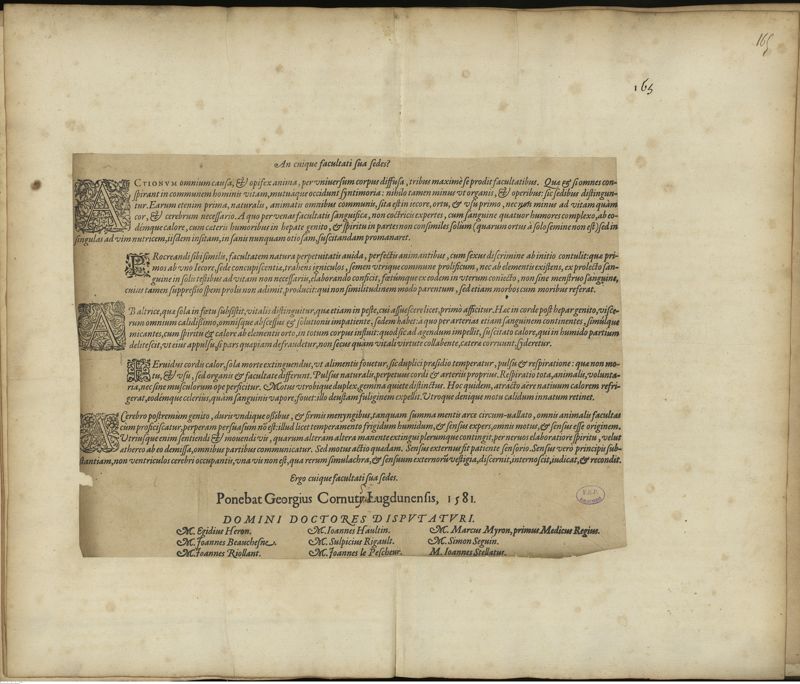 165
165
An cuique facultati sua sedes?
ACTIONVM omnium causa, & opifex anima, per vniuersum corpus diffusa, tribus maximè se prodit facultatibus. Quæ & si omnes con-
spirant in communem hominis vitam, mutuáque occidunt syntimoria: nihilo tamen minus vt organis, & operibus: sic sedibus distinguun-
tur. Earum etenim prima, naturalis, animati omnibus communis, sita est in iecore, ortu, & vsu primo, nec minus ad vitam quàm
cor, & cerebrum necessario. A quo per venas facultatis sanguifica, non coctricis expertes, cum sanguine quatuor humores complexo, ab eo-
démque calore, cum cæteris humoribus in hepate genito, & spiritu in partes non consimiles solùm (quarum ortus à solo semine non est) sed in
singulas ad vim nutricem, iisdem insitam, in sani nunquam otiosam, suscitandam promanaret.
PRocreandi sibi similis, facultatem natura perpetuitatis auida, perfectis animantibus, cum sexus discrimine ab initio contulit: quæ pri-
mos ab vno Iecore, sede concupiscentiæ, trahens igniculos, semen vtrique commune prolificum, nec ab elementis existens, ex prolecto san-
guine in solis testibus ad vitam non necessariis, elaborando conficit, fœtúmque ex eodem in vterum coniecto, non sine menstruo sanguine,
cuius tamen suppressio spem prolis non adimit, producit: qui non similitudinem modo parentum, sed etiam morbos cum moribus referat.
AB altrice, quæ sola in fœtu subsistit, vitalis distinguitur, quæ etiam in peste, cui assuescere licet, primò afficitur. Hæc in corde post hepar genito, visce-
rum omnium calidissimo, omnisque abscessus & solutionis impatiente, sedem habet: à quo per arterias etiam sanguinem continentes, simúlque
micantes, cum spiritu & calore ab elementis orto, in totum corpus influit: quod sicut ad agendum impellit, suscitato calore, qui in humido partium
delitescit, vt eius appulsu, si pars quæpiam defraudetur, non secus quàm vitali virtute collabente, cætera corruunt, syderetur.
FEruidus cordis calor, sola morte extinguendus, vt alimentis fouetur, sic duplici præsidio temperatur, pulsu & respiratione: quæ non mo-
tu, & vsu, sed organis & facultate differunt. Pulsus naturalis, perpetuus cordi & arteriis proprius. Respiratio tota, animalis, volunta-
ria, nec sine musculorum ope perficitur. Motus vtrobique duplex, gemina quiete distinctus. Hoc quidem, attracto aëre natiuum calorem refri-
gerat, eodémque celerius, quàm sanguinis vapore, fouet: illo deustam fuliginem expellit. Vtroque denique motu calidum innatum retinet.
A Cerebro postremum genito, duris vndique ossibus, & firmis menyngibus, tanquam summa mentis arce circum-uallato, omnis animalis facultas
cum proficiscatur, perperam persuasum nõ est: illud licet temperamento frigidum humidum, & sensus expers, omnis motus, & sensus esse originem.
Vtriusque enim sentiendi & mouendi vis, quarum alteram altera manente extingui plerunque contingit, per neruos elaboratiore spiritu, velut
athereo ab eo demissa, omnibus partibus communicatur. Sed motus actio quædam. Sensus externus fit patiente sensorio. Sensus verò principis sub-
stantiam, non ventriculos cerebri occupantis, vna vis non est, quæ rerum simulachra, & sensuum externorũ vestigia, discernit, internoscit, iudicat, & recondit.
Ergo cuique facultati sua sedes.
Ponebat Georgius Cornuty Lugdunensis, 1581.
DOMINI DOCTORES DISPVTATVRI.
M. Egidius Heron. M. Ioannes Haultin. M. Marcus Myron, primus Medicus Regius.
M. Ioannes Beauchesne. M. Sulpicius Rigault. M. Simon Seguin.
M. Ioannes Riollant. M. Ioannes le Pescheur. M. Ioannes Stellatus.